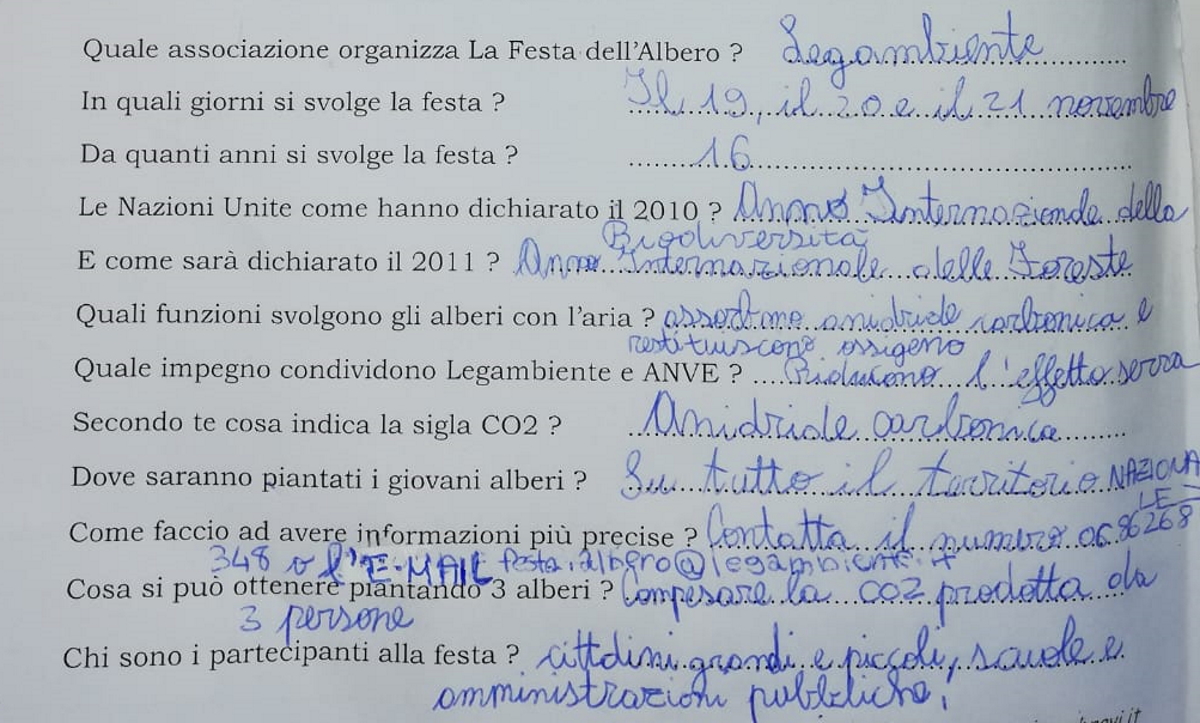 Quale associazione organizza La Festa dell'Albero ? Legambiente
In quali giorni si svolge la festa ? Il 19, il 20 e il 21 novembre
Da quanti anni si svolge la festa ? 16
Le Nazioni Unite come hanno dichiarato il 2010 ? Anno Internazionale della
Bigodiversità
E come sarà dichiarato il 2011 ? Anno Internazionale delle Foreste
Quali funzioni svolgono gli alberi con l'aria ? assorbono anidride carbonica e
restituiscono ossigeno
Quale impegno condividono Legambiente e ANVE ? Riducono l'effetto serra
Secondo te cosa indica la sigla CO2 ? Anidride carbonica
Dove saranno piantati i giovani alberi ? Su tutto il territorio NAZIONA
LE
Come faccio ad avere informazioni più precise ? Contatta il numero 06 86268
348 o l'E-MAIL festa.albero@legambiente.it
Cosa si può ottenere piantando 3 alberi ? Compesare la CO2 prodotta da
3 persone
Chi sono i partecipanti alla festa ? cittdini grandi e piccoli, scuole e
amministrazioni pubbliche,